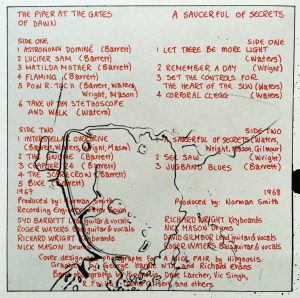 THE PIPER AT THE GATES
OF DAWN
SIDE ONE
1 ASTRONOMY DOMINÉ (Barrett)
2 LUCIFER SAM (Barrett)
3 MATILDA MOTHER (Barrett)
4 FLAMING (Barrett)
5 POW R. TOC H (Barrett, Waters,
Wright, Mason)
6 TAKE UP THY STETHOSCOPE
AND WALK (Waters)
SIDE TWO
1 INTERSTELLAR OVERDRIVE
(Barrett, Waters, Wright, Mason)
2 THE GNOME (Barrett)
3 CHAPTER 24 (Barrett)
4 THE SCARECROW (Barrett)
5 BIKE (Barrett)
1967
Produced by: Norman Smith
Recording Engineer
SYD BARRETT guitar & vocals
ROGER WATERS guitar & vocals
RICHARD WRIGHT keyboards
NICK MASON drums
A SAUCERFUL OF SECRETS
SIDE ONE
1 LET THERE BE MORE LIGHT
(Waters)
2 REMEMBER A DAY
(Wright)
3 SET THE CONTROLS FOR
THE HEART OF THE SUN (Waters)
4 CORPORAL CLEGG (Waters)
SIDE TWO
1 A SAUCERFUL OF SECRETS (Waters,
Wright, Mason, Gilmour)
2 SEE SAW (Wright)
3 JUGBAND BLUES (Barrett)
1968
Produced by: Norman Smith
RICHARD WRIGHT Keyboards
NICK MASON Drums
DAVID GILMOUR guitar & vocals
ROGER WATERS guitar & vocals
Cover design photographs for A NICE PAIR by Hipgnosis.
Graphics by George Hardie and Richard Evans